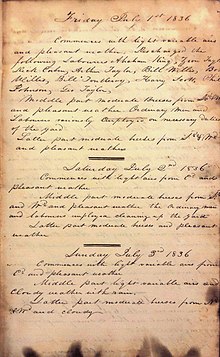 Friday July 1st 1836
Commences with light variable airs
and pleasant weather. Discharged the
following Labourers Abraham King, Geo Taylor
Rick Cater, Arthur Taylor, Bill Willis,
Willis, Bill Fortliney, Harry Scott,
Johnson, Geo Tyler,
Middle part moderate breezes from
and pleasant weather. Ordinary Men &
Labourers variously employed on necessary duties
of the yard
Latter part moderate breezes from
and pleasant weather
Saturday July 2d 1836
Commences with light airs from
pleasant weather
Middle part moderate breezes from
and and pleasant weather. The Ordinary men
and Labourers employed cleaning up the yard
Latter part moderate breezes and pleasant
weather
Sunday July 3d 1836
Commences with light variable airs from
and pleasant weather
Middle part light variable airs and
cloudy weather
Latter part moderate breezes from
and cloudy